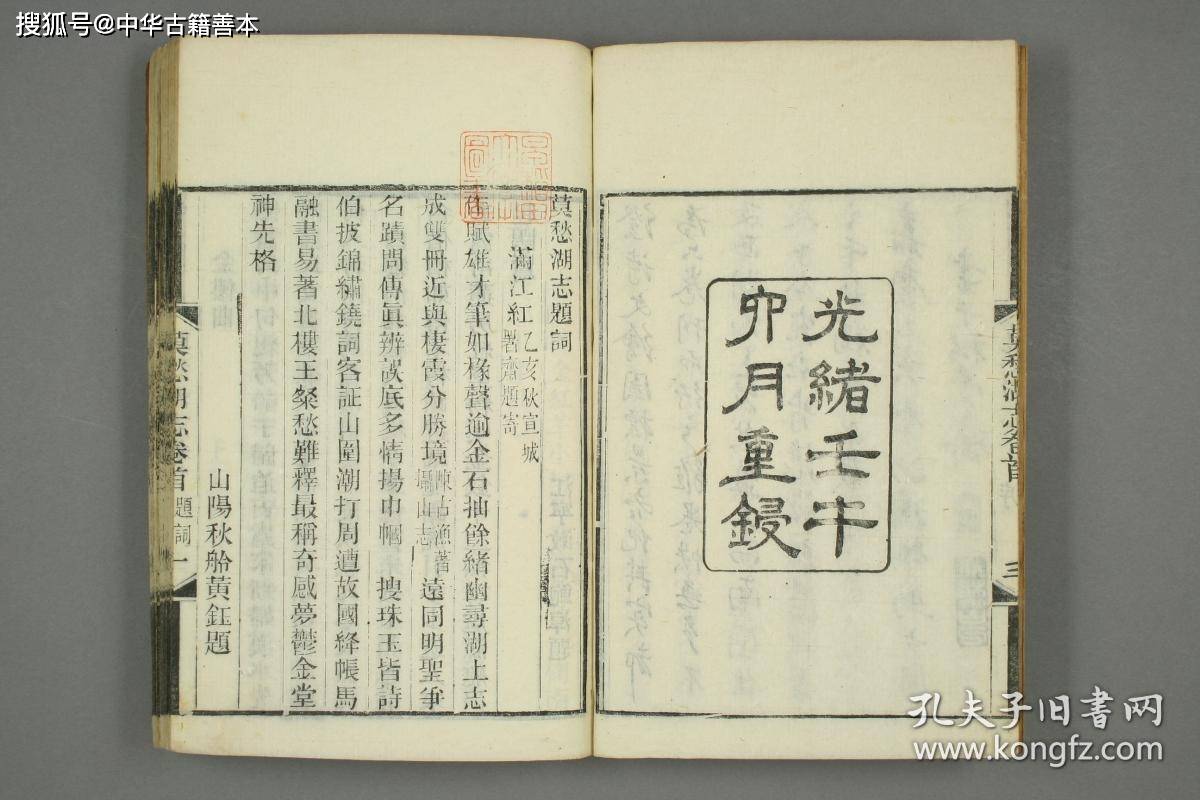 搜狐号@中华古籍善本
光緒壬午
卯月重鋟
莫愁湖志題詞
滿江紅 乙亥秋宣城
署齋題寄
作賦雄才筆如椽聲逾金石抽餘緒幽尋湖上志
成雙冊近與棲霞分勝境 陳古漁著
攝山志 遠同明聖爭
名蹟問傳眞辨誤底多情揚巾幗 搜珠玉皆詩
伯披錦繡鐃詞客証山圍潮打周遭故國絳帳馬
融書易著北樓王粲愁難釋最稱奇感夢鬱金堂
神先格
山陽秋舲黃鈺題
莫愁湖志卷首 題詞 一
孔夫子旧书网
www.kongfz.com